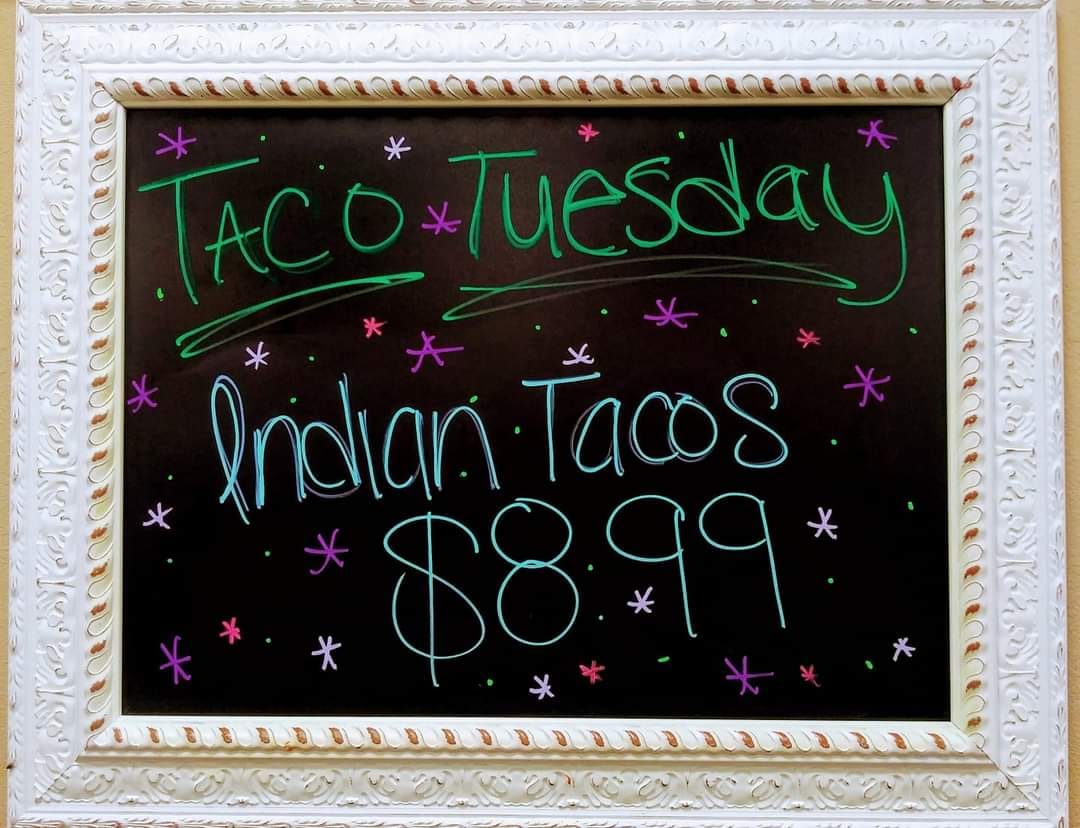 Taco Tuesday
Indian Tacos
$8.99